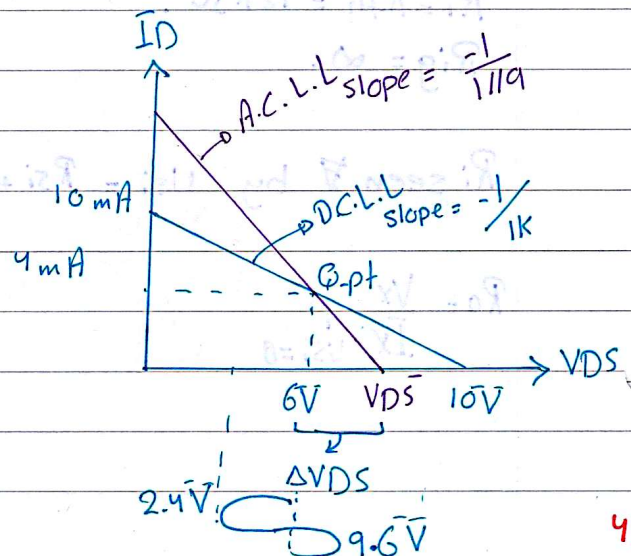 ID
A.C.L.L slope = -1/1119
10 mA
D.C.L.L slope = -1/1K
4 mA
Q-pt
VDS
6V VDS 10V
ΔVDS
2.4V
9.6V
4